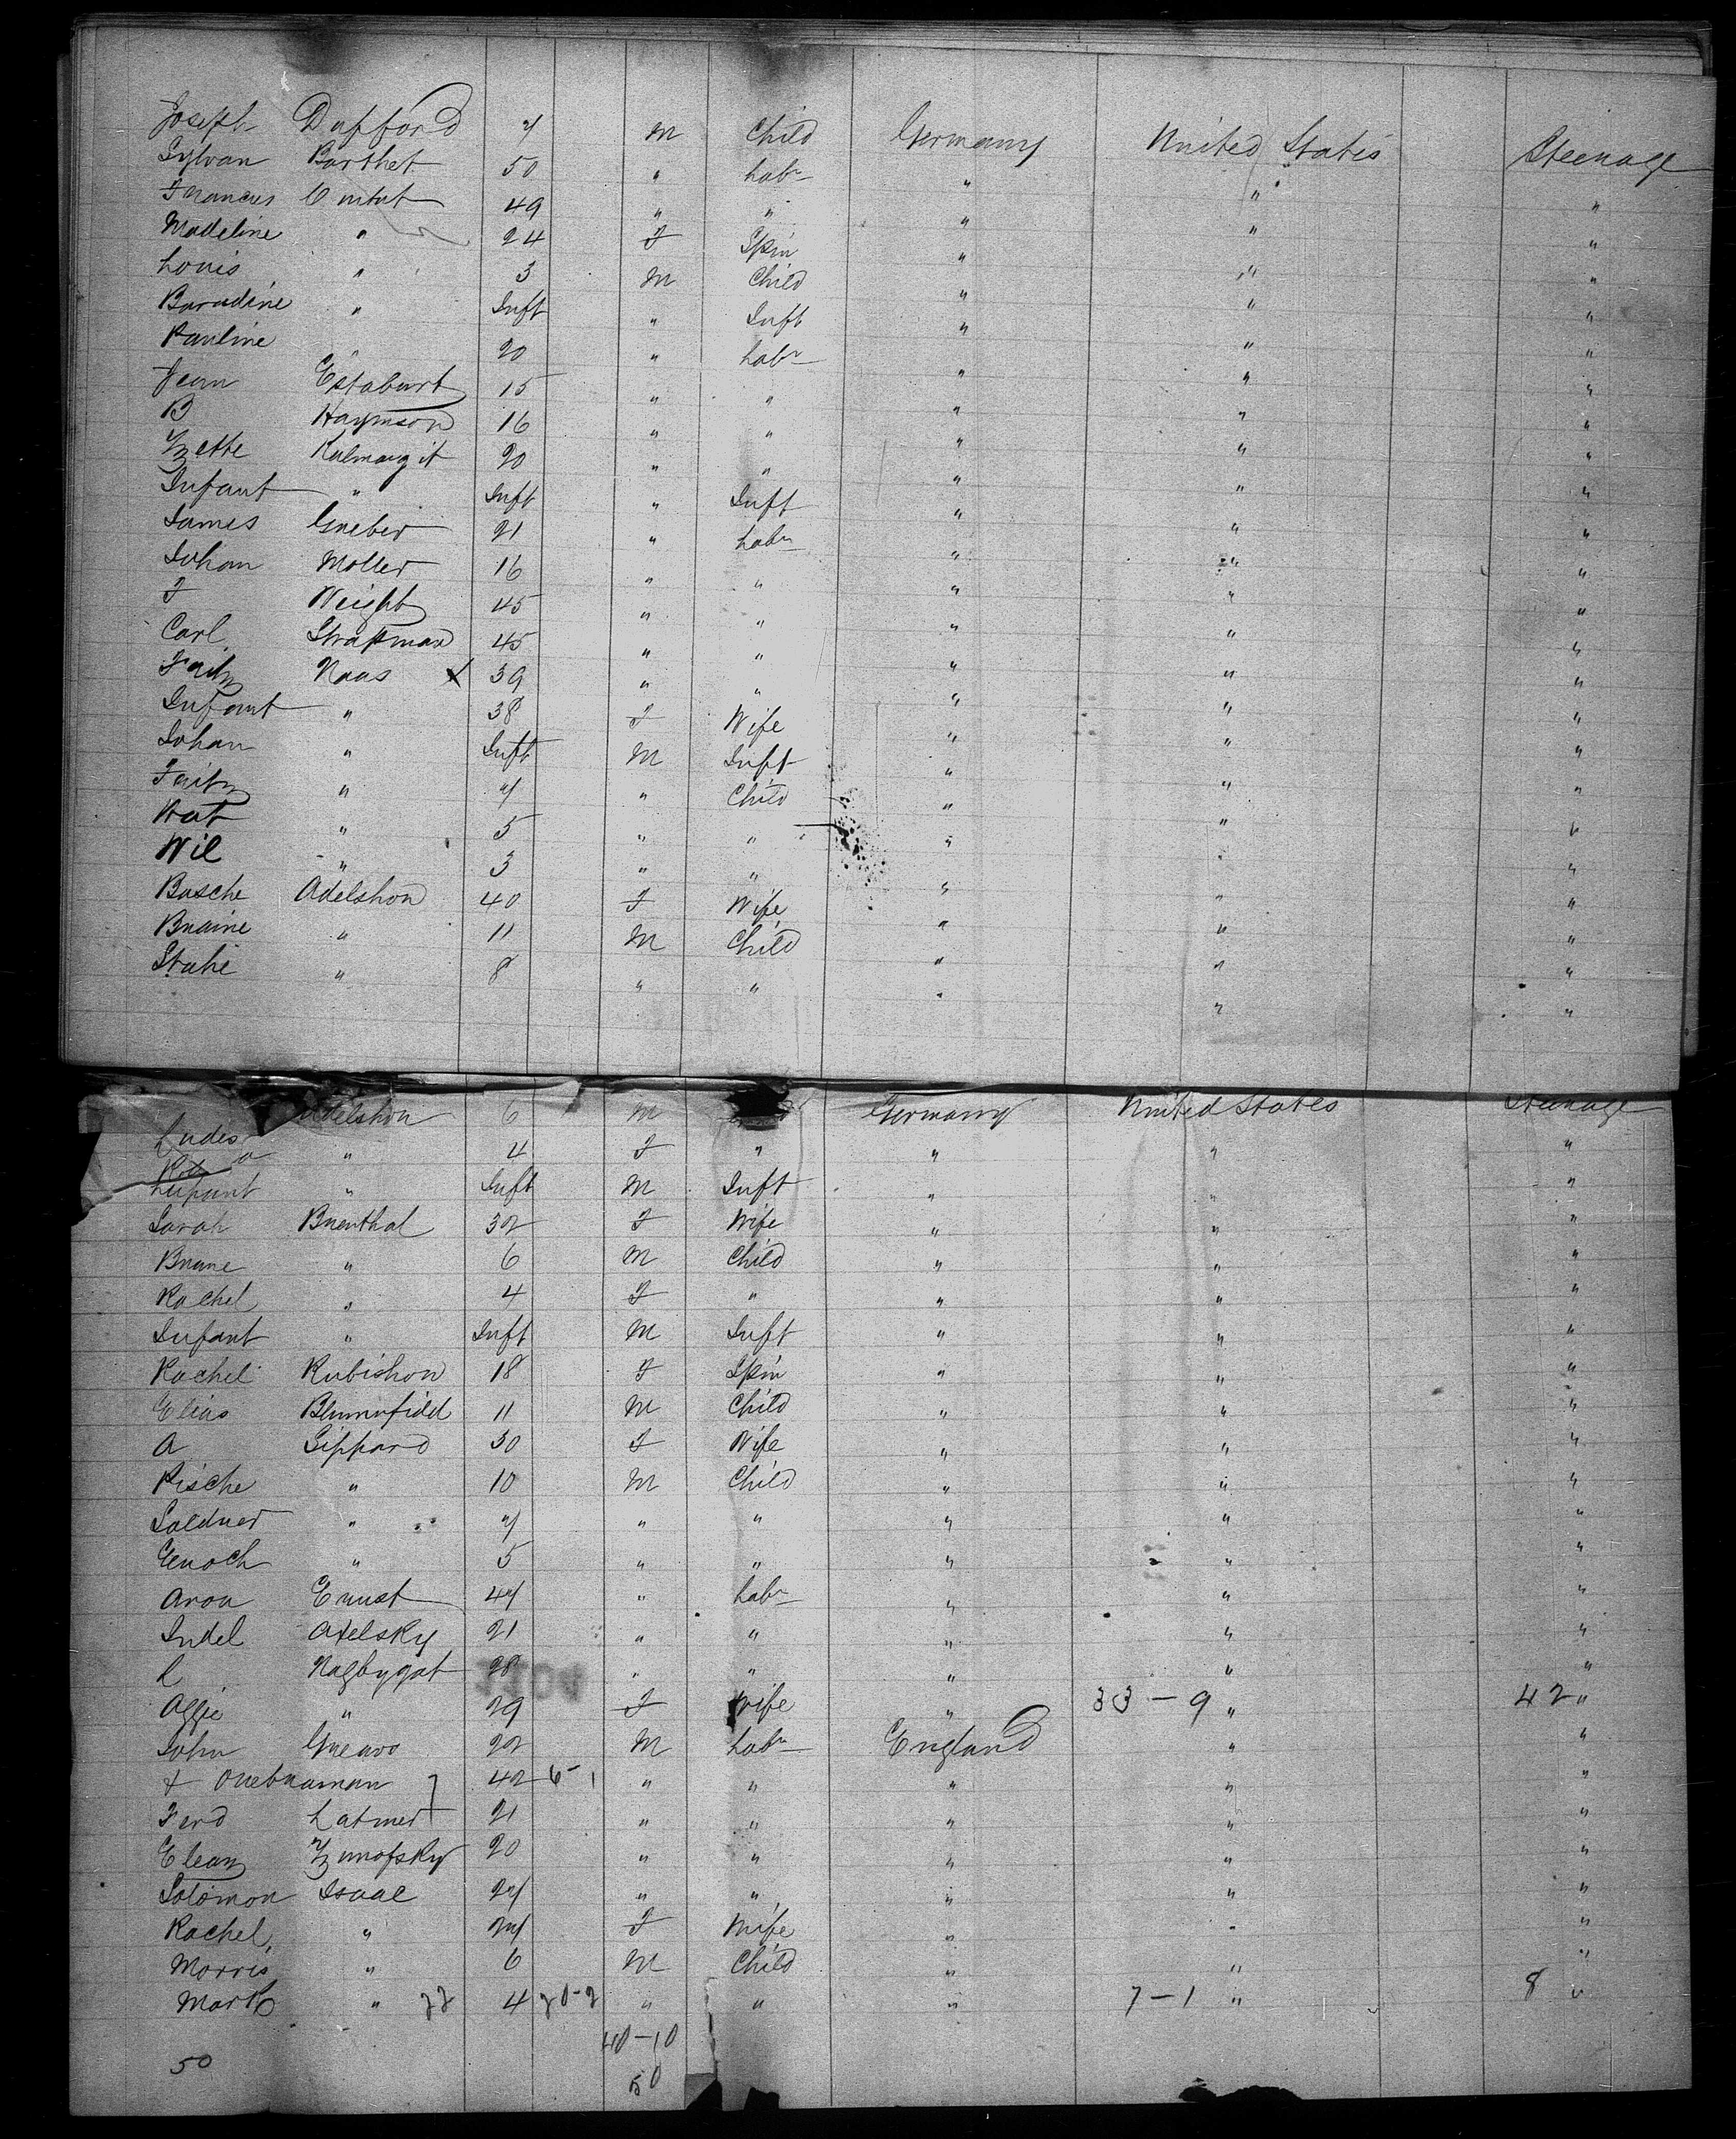 Joseph Dufford 7 M Child Germany United States Steerage
Sylvan Barthet 50 " Labr " " "
Francois Contat 49 " " " " "
Madeline " 24 F Spin " " "
Louis " 3 M Child " " "
Baradine " Inft " Inft " " "
Pauline " 20 " Labr " " "
Jean Estaburt 15 " " " " "
B Haymson 16 " " " " "
Yzette Kulmargit 20 " " " " "
Infant " Inft " Inft " " "
James Grieber 21 " Labr " " "
Johan Moller 16 " " " " "
F Weight 45 " " " " "
Carl Strapman 45 " " " " "
Fritz Naas x 39 " " " " "
Infant " 38 F Wife " " "
Johan " Inft M Inft " " "
Fritz " 7 " Child " " "
Nat " 5 " " " " "
Wil " 3 " " " " "
Basche Adelshon 40 F Wife " " "
Braine " 11 M Child " " "
Stahe " 8 " " " " "
Adelshon 6 M Germany United States Steerage
" 4 F " " " "
Infant " Inft M Inft " " "
Sarah Brenthal 32 F Wife " " "
Brane " 6 M Child " " "
Rachel " 4 F " " " "
Infant " Inft M Inft " " "
Rachel Rubishon 18 F Spin " " "
Elias Blumnfield 11 M Child " " "
A Sippard 30 F Wife " " "
Pische " 10 M Child " " "
Saldner " 7 " " " " "
Enoch " 5 " " " " "
Aron Ernust 47 " Labr " " "
Judel Axelsky 21 " " " " "
L Nagbygat 28 " " " " "
Aggie " 29 F Wife " 33 - 9 " 42 "
John Greavo 22 M Labr England " "
+ Onebnaman 42 6 - 1 " " " " "
Ferd Latmer 21 " " " " "
Eleaz Zunofsky 20 " " " " "
Solomon Isaac 27 " " " " "
Rachel " 27 F Wife " " "
Morris " 6 M Child " " "
Mark " 4 " " " 7 - 1 " 8 "
40 - 10
50 50